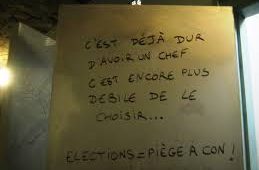 C'EST DÉJÀ DUR
D'AVOIR UN CHEF
C'EST ENCORE PLUS
DEBILE DE LE
CHOISIR...
ELECTIONS = PIÈGE À CON !